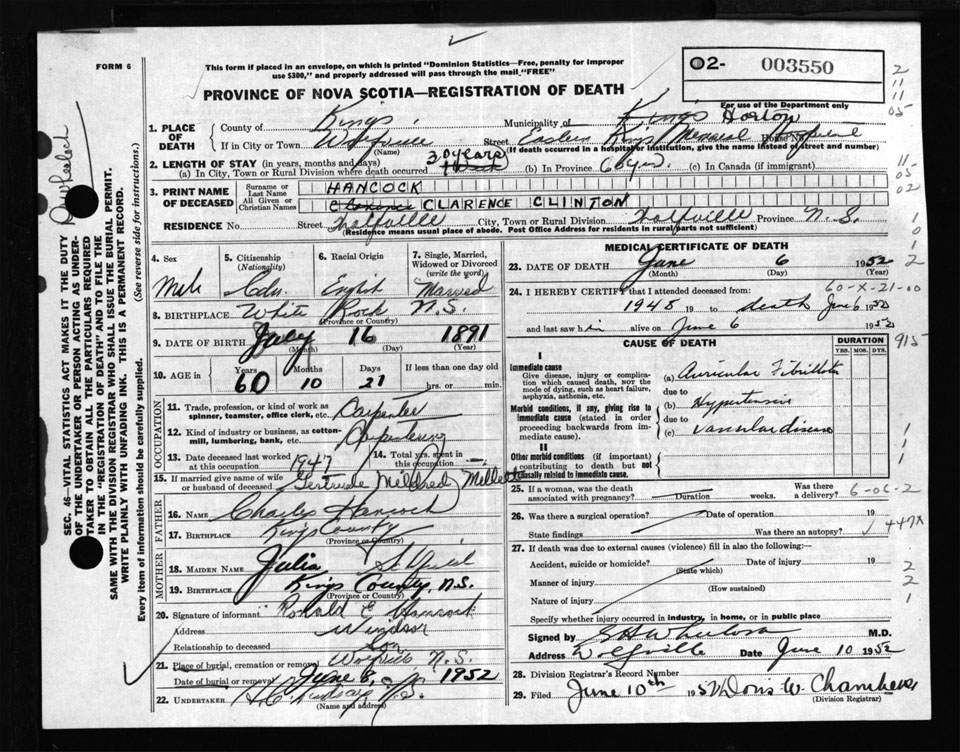 FORM 6
This form if placed in an envelope, on which is printed "Dominion Statistics—Free, penalty for improper
use $300," and properly addressed will pass through the mail "FREE"
02- 003550
PROVINCE OF NOVA SCOTIA—REGISTRATION OF DEATH
For use of the Department only
2
11
11
05
1. PLACE OF DEATH
County of Kings Municipality of Kings Horton
If in City or Town Wolfville Street Eastern Kings Memorial Hospital House No.
(Name) (If death occurred in a hospital or institution, give the name instead of street and number)
2. LENGTH OF STAY (in years, months and days) 30 years
(a) In City, Town or Rural Division where death occurred 1 Week (b) In Province 60 yrs. (c) In Canada (if immigrant)
11-
05
02
3. PRINT NAME OF DECEASED
Surname or Last Name HANCOCK
All Given or Christian Names Clarence CLARENCE CLINTON
RESIDENCE No. Street Wolfville City, Town or Rural Division Wolfville Province N.S.
(Residence means usual place of abode. Post Office Address for residents in rural parts not sufficient)
1
0
1
2
4. Sex
5. Citizenship
(Nationality)
6. Racial Origin
7. Single, Married,
Widowed or Divorced
(write the word)
Male Cdn. English Married
8. BIRTHPLACE White Rock N.S.
(Province or Country)
9. DATE OF BIRTH July 16 1891
(Month) (Day) (Year)
10. AGE in Years Months Days If less than one day old
60 10 21 hrs. or min.
OCCUPATION
11. Trade, profession, or kind of work as
spinner, teamster, office clerk, etc. Carpenter
12. Kind of industry or business, as cotton-
mill, lumbering, bank, etc. Carpentering
13. Date deceased last worked
at this occupation 1947
14. Total yrs. spent in
this occupation
15. If married give name of wife
or husband of deceased Gertrude Mildred Millett
FATHER
16. NAME Charles Hancock
17. BIRTHPLACE Kings County
(Province or Country)
MOTHER
18. MAIDEN NAME Julia
19. BIRTHPLACE Kings County, N.S.
(Province or Country)
20. Signature of informant Ronald E Hancock
Address Windsor
Relationship to deceased Son
21. Place of burial, cremation or removal Wolfville N.S.
Date of burial or removal June 8, 1952
22. UNDERTAKER N.S.
(Name and address)
MEDICAL CERTIFICATE OF DEATH
23. DATE OF DEATH June 6 1952
(Month) (Day) (Year)
60-X-21-00
24. I HEREBY CERTIFY that I attended deceased from:
1948 19 to death June 6 1952
and last saw him alive on June 6 1952
CAUSE OF DEATH
DURATION
YRS. MOS. DYS.
915
I
Immediate cause
Give disease, injury or complica-
tion which caused death, NOT the
mode of dying, such as heart failure,
asphyxia, asthenia, etc.
(a) Auricular Fibrillation
due to
Morbid conditions, if any, giving rise to
immediate cause (stated in order
proceeding backwards from im-
mediate cause).
(b) Hypertensive
due to
(c) Vascular disease
II
Other morbid conditions (if important)
contributing to death but not
causally related to immediate cause.
1
1
1
25. If a woman, was the death
associated with pregnancy? Duration weeks. Was there
a delivery? 6-06-2
26. Was there a surgical operation? Date of operation 19
State findings Was there an autopsy?
447X
27. If death was due to external causes (violence) fill in also the following:—
Accident, suicide or homicide? Date of injury 19
(State which)
Manner of injury
(How sustained)
Nature of injury
Specify whether injury occurred in industry, in home, or in public place
2
2
1
Signed by M.D.
Address Wolfville Date June 10 1952
28. Division Registrar's Record Number
29. Filed June 10th 1952 Doris W. Chambers
(Division Registrar)
SEC. 46 VITAL STATISTICS ACT MAKES IT THE DUTY
OF THE UNDERTAKER OR PERSON ACTING AS UNDER-
TAKER TO OBTAIN ALL THE PARTICULARS REQUIRED
IN THE "REGISTRATION OF DEATH" AND TO FILE THE
SAME WITH THE DIVISION REGISTRAR WHO SHALL ISSUE THE BURIAL PERMIT.
WRITE PLAINLY WITH UNFADING INK. THIS IS A PERMANENT RECORD.
Every item of information should be carefully supplied. (See reverse side for instructions.)